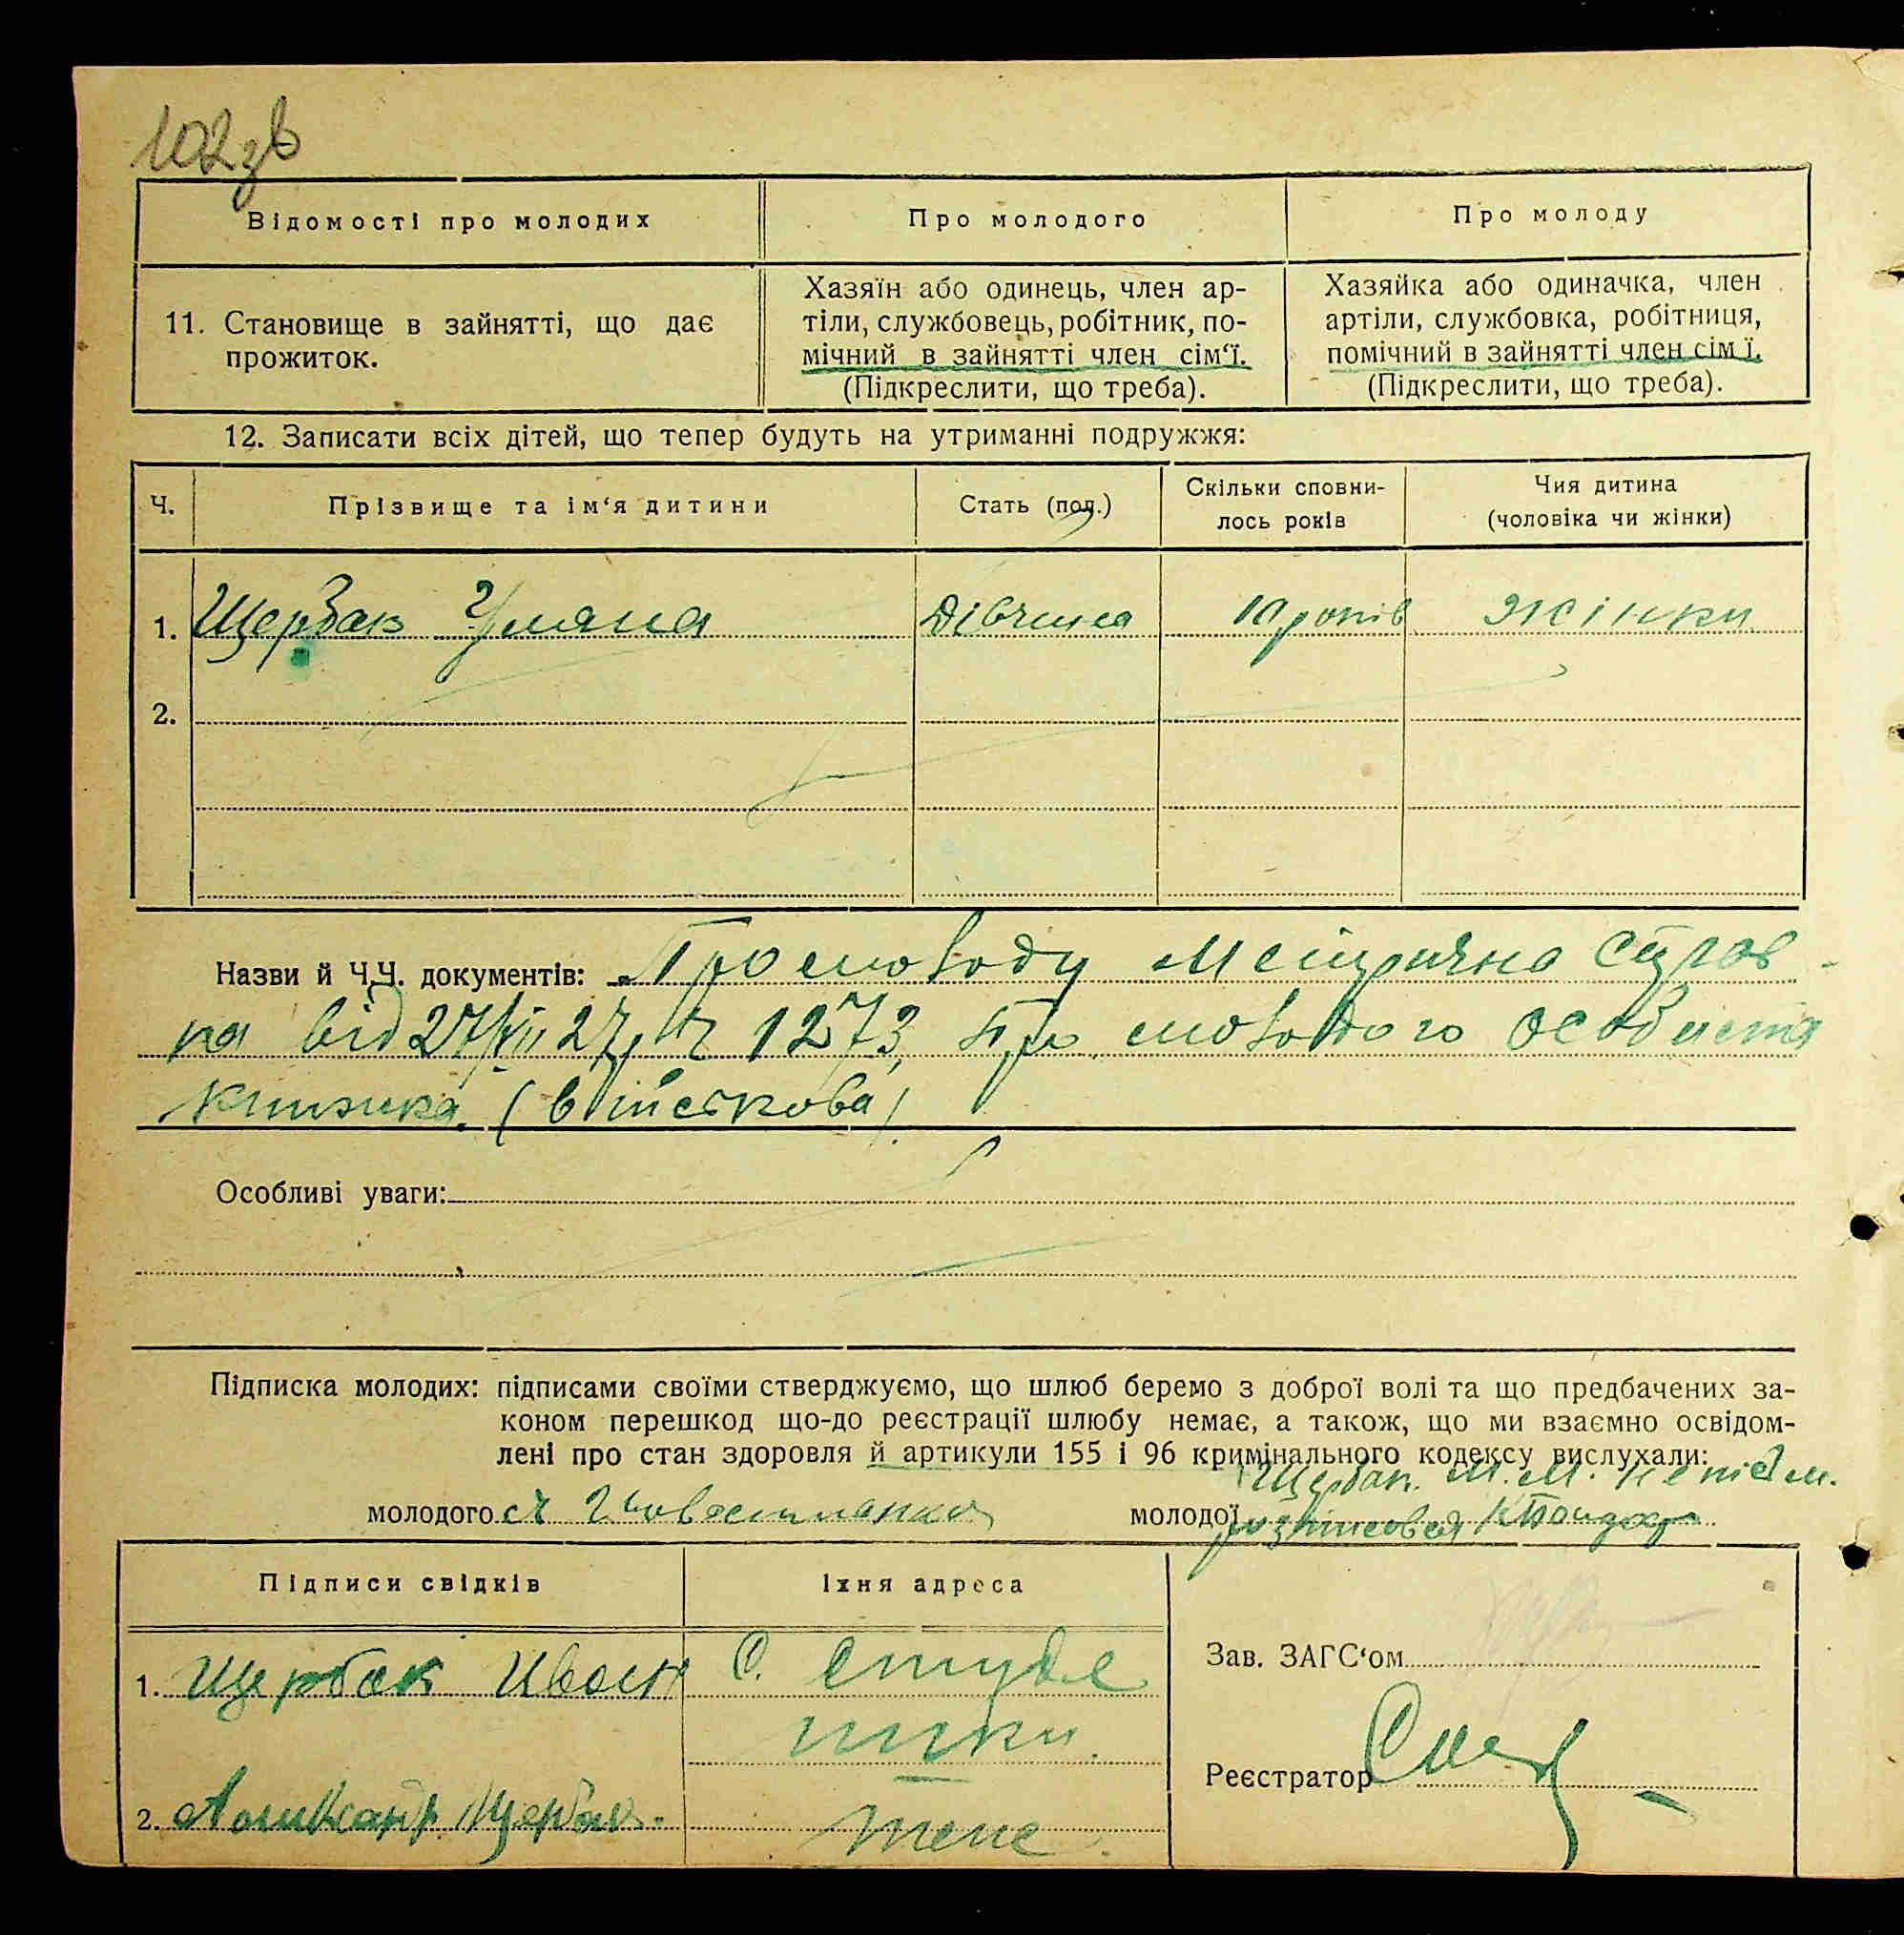 102зв
Відомості про молодих
Про молодого
Про молоду
11. Становище в зайнятті, що дає
прожиток.
Хазяїн або одинець, член ар-
тіли, службовець, робітник, по-
мічний в зайнятті член сім‘ї.
(Підкреслити, що треба).
Хазяйка або одиначка, член
артіли, службовка, робітниця,
помічний в зайнятті член сім ї.
(Підкреслити, що треба).
12. Записати всіх дітей, що тепер будуть на утриманні подружжя:
Ч.
Прізвище та ім‘я дитини
Стать (пол.)
Скільки сповни-
лось років
Чия дитина
(чоловіка чи жінки)
1. Щербак Уляна
Дівчина
10 років
жінки
2.
Назви й Ч.Ч. документів: Про молоду метрична справ-
ка від 27/VII 27 р. Ч 1273, про молодого особиста
книжка (військова)
Особливі уваги:
Підписка молодих: підписами своїми стверджуємо, що шлюб беремо з доброї волі та що предбачених за-
коном перешкод що-до реєстрації шлюбу немає, а також, що ми взаємно освідом-
лені про стан здоровля й артикули 155 і 96 кримінального кодексу вислухали:
Щербак. М. М. непісьм.
молодого
молодої розписовся
Підписи свідків
Їхня адреса
1. Щербак Иван
С. Студе
ники.
2. Алипсандр Щербак.
тепе
Зав. ЗАГС‘ом
Реєстратор